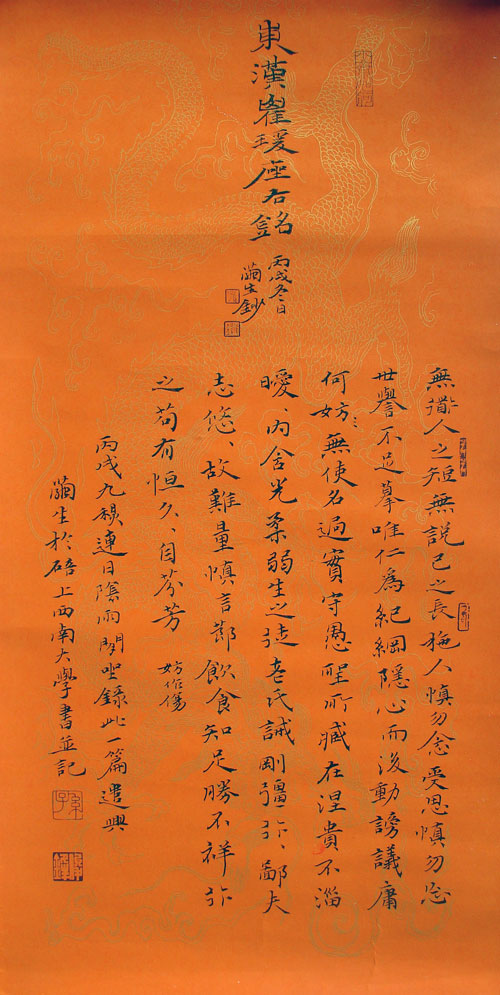 東漢崔瑗座右銘
丙戌冬日
繭生鈔
無道人之短無說己之長施人慎勿念受恩慎勿忘
世譽不足慕唯仁為紀綱隱心而後動謗議庸
何妨無使名過實守愚聖所臧在涅貴不淄
曖、內含光柔弱生之徒老氏誡剛彊行、鄙夫
志悠、故難量慎言節飲食知足勝不祥行
之苟有恒久、自芬芳 妨作傷
丙戌九秋連日陰雨閒坐錄此一篇遣興
繭生於碚上西南大學書並記